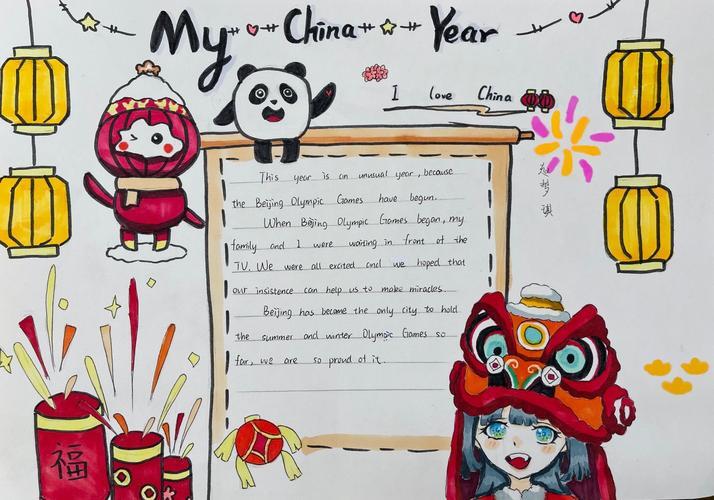 My China Year
I love China
This year is an unusual year, because
the Beijing Olympic Games have begun.
When Beijing Olympic Games began, my
family and I were waiting in front of the
TV. We were all excited and we hoped that
our insistence can help us to make miracles.
Beijing has become the only city to hold
the summer and winter Olympic Games so
far, we are so proud of it.
福